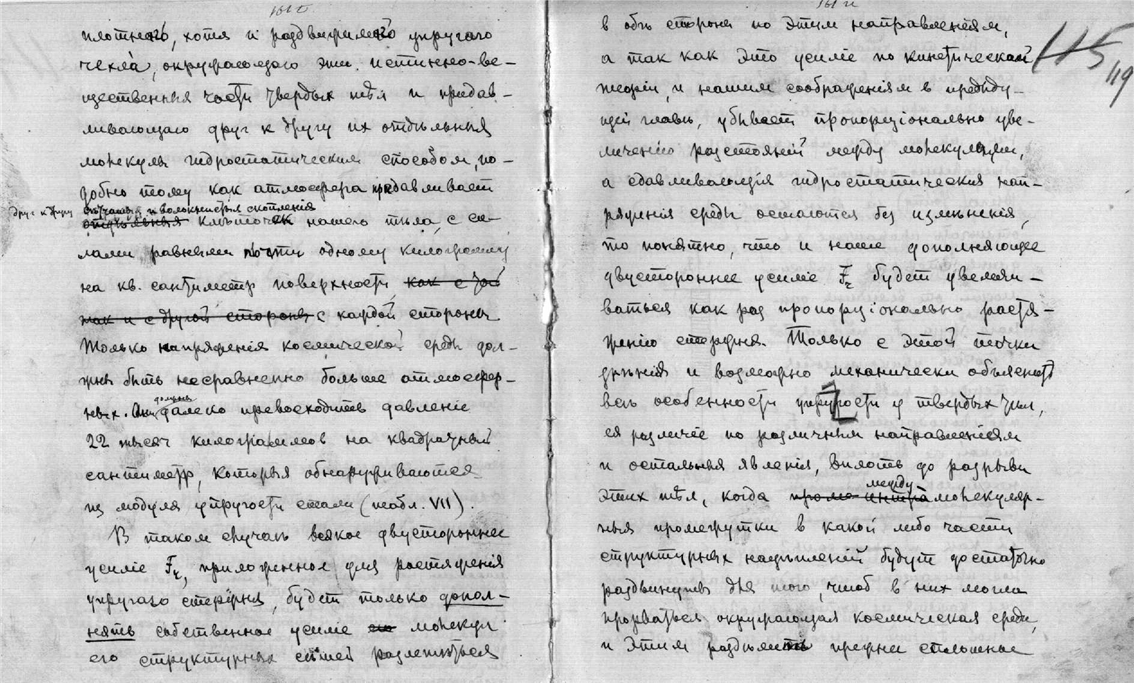 плотнаго, хотя и раздвижимаго упругаго
чехла, окружающаго эти истинно-ве-
щественныя части твердых тѣл и придав-
ливающаго друг к другу их отдѣльныя
молекулы гидростатическим способом, по-
добно тому как атмосфера придавливает
друг к другу клѣточек нашего тѣла, с си-
лами равными почти одному килограмму
на кв. сантиметр поверхности с каждой стороны
Только напряженія космической среды дол-
жны быть несравненно больше атмосфер-
ных. Они должны далеко превосходить давленіе
22 тысяч килограммов на квадратный
сантиметр, которыя обнаруживаются
из модуля упругости стали (табл. VII).
В таком случаѣ всякое двустороннее
усиліе F, приложенное для растяженія
упругаго стержня, будет только допол-
нять собственное усиліе молекул
его структурных сѣтей разлетѣться
в обѣ стороны по этим направленіям,
а так как это усиліе по кинетической
теоріи, и нашим соображеніям в предыду-
щей главѣ, убывает пропорціонально уве-
личенію разстояній между молекулами,
а сдавливающія гидростатическія нап-
ряженія среды остаются без измѣненія,
то понятно, что и наше дополняющее
двустороннее усиліе F будет увеличи-
ваться как раз пропорціонально растя-
женію стержня. Только с этой точки
зрѣнія и возможно механически объяснить
всѣ особенности упругости у твердых тѣл,
ея различіе по различным направленіям
и остальныя явленія, вплоть до разрыва
этих тѣл, когда между молекуляр-
ные промежутки в какой либо части
структурных нацѣпленій будут достаточно
раздвинуты для того, чтоб в них могла
прорваться окружающая космическая среда,
и этим раздѣлить прежде сплошные
115
119